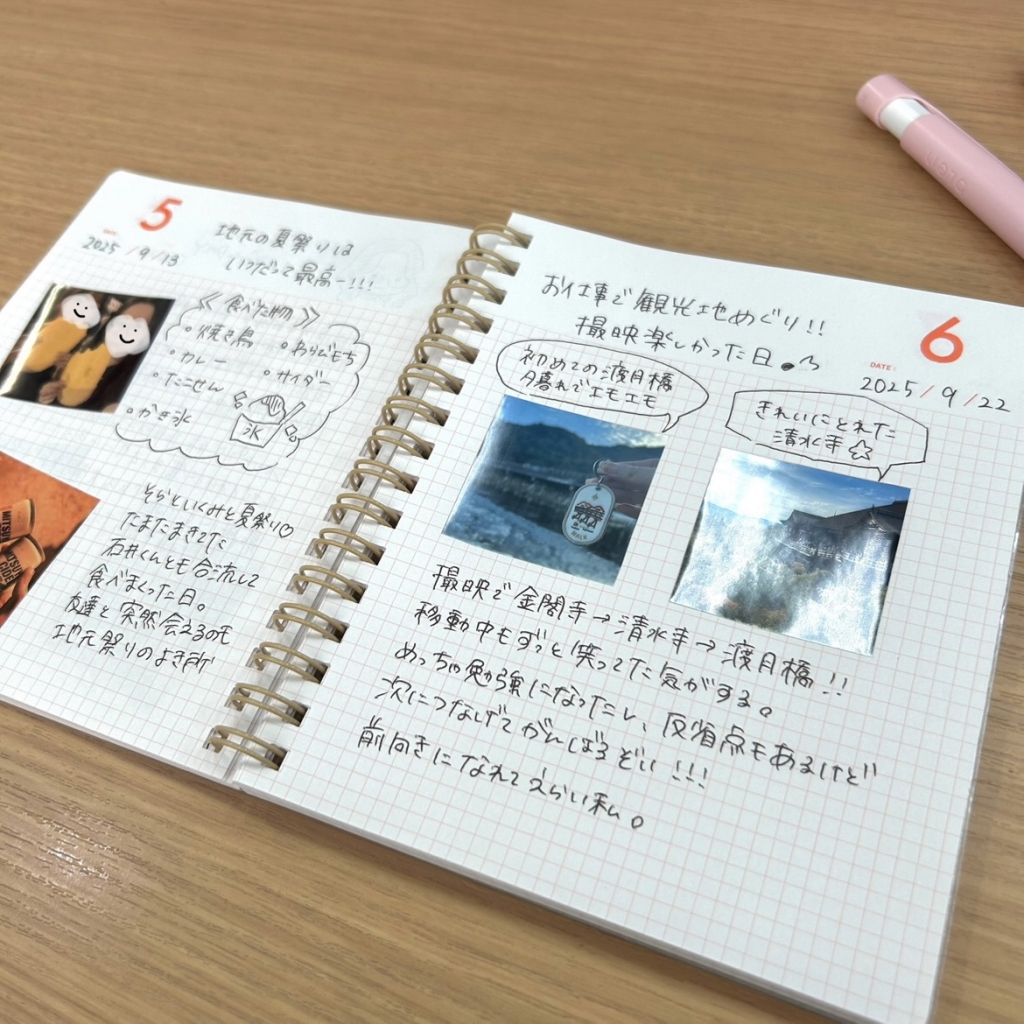 5
DATE:
2025/9/13
地元の夏祭りは
いつだって最高ー!!!
《食べた物》
・焼き鳥
・わらびもち
・カレー
・サイダー
・たこせん
・かき氷
氷
そらといくみと夏祭り♡
たまたまきてた
石井くんとも合流して
食べまくった日。
友達と突然会えるのも
地元祭りのよき所
6
DATE:
2025/9/22
お仕事で観光地めぐり!!
撮映楽しかった日。
初めての渡月橋
夕暮れでエモエモ
きれいにとれた
清水寺☆
撮映で金閣寺→清水寺→渡月橋!!
移動中もずっと笑ってた気がする。
めっちゃ勉強になったし、反省点もあるけど
次につなげてがんばるぞい!!!
前向きになれてえらい私。